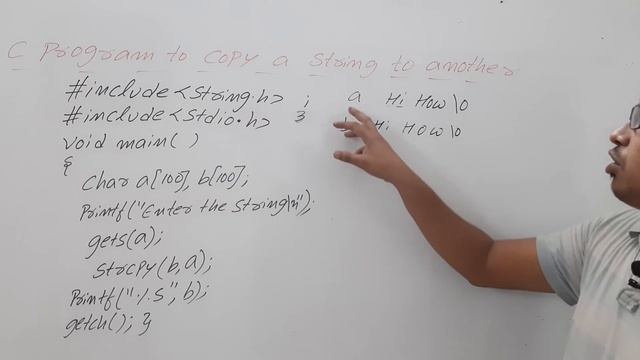 C Program to copy a string to another
#include<string.h>
#include<stdio.h>
void main( )
{
char a[100], b[100];
Printf("Enter the string\n");
gets(a);
strcpy(b,a);
Printf("%s", b);
getch(); }
i
3
a Hi How \0
Hi How \0